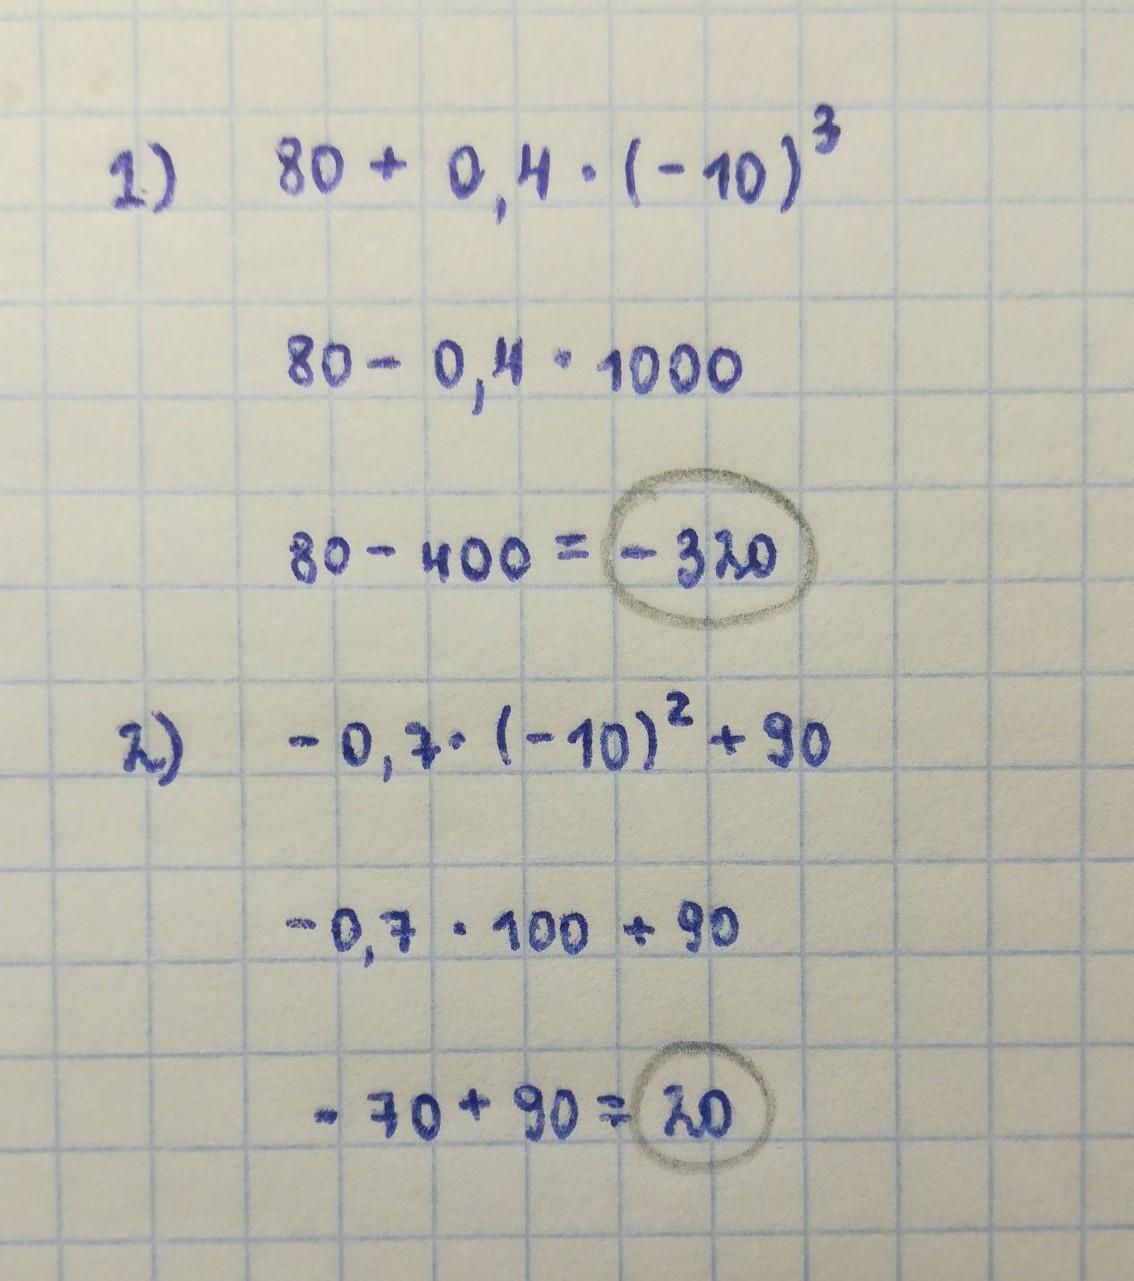 1) 80 + 0,4 · (-10)³
80 - 0,4 · 1000
80 - 400 = -320
2) -0,7 · (-10)² + 90
-0,7 · 100 + 90
-70 + 90 = 20